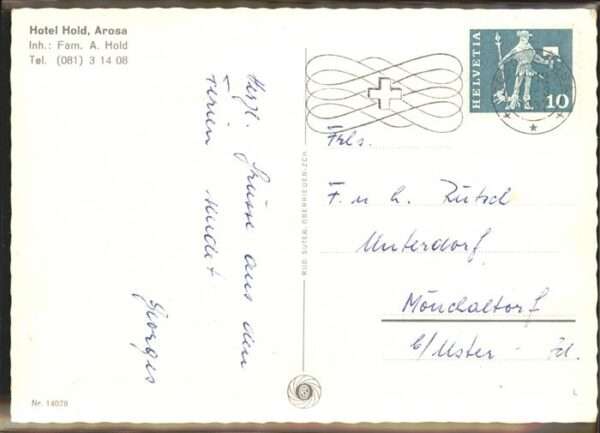 Hotel Hold, Arosa
Inh.: Fam. A. Hold
Tel. (081) 3 14 08
Herzl. Grüsse aus den
Ferien sendet
Georges
Nr. 14078
RUD. SUTER, OBERRIEDEN-ZCH.
HELVETIA
10
Frls.
F. u. h. Rütsch
Unterdorf
Mönchaltorf
b/Uster - Zd.
L